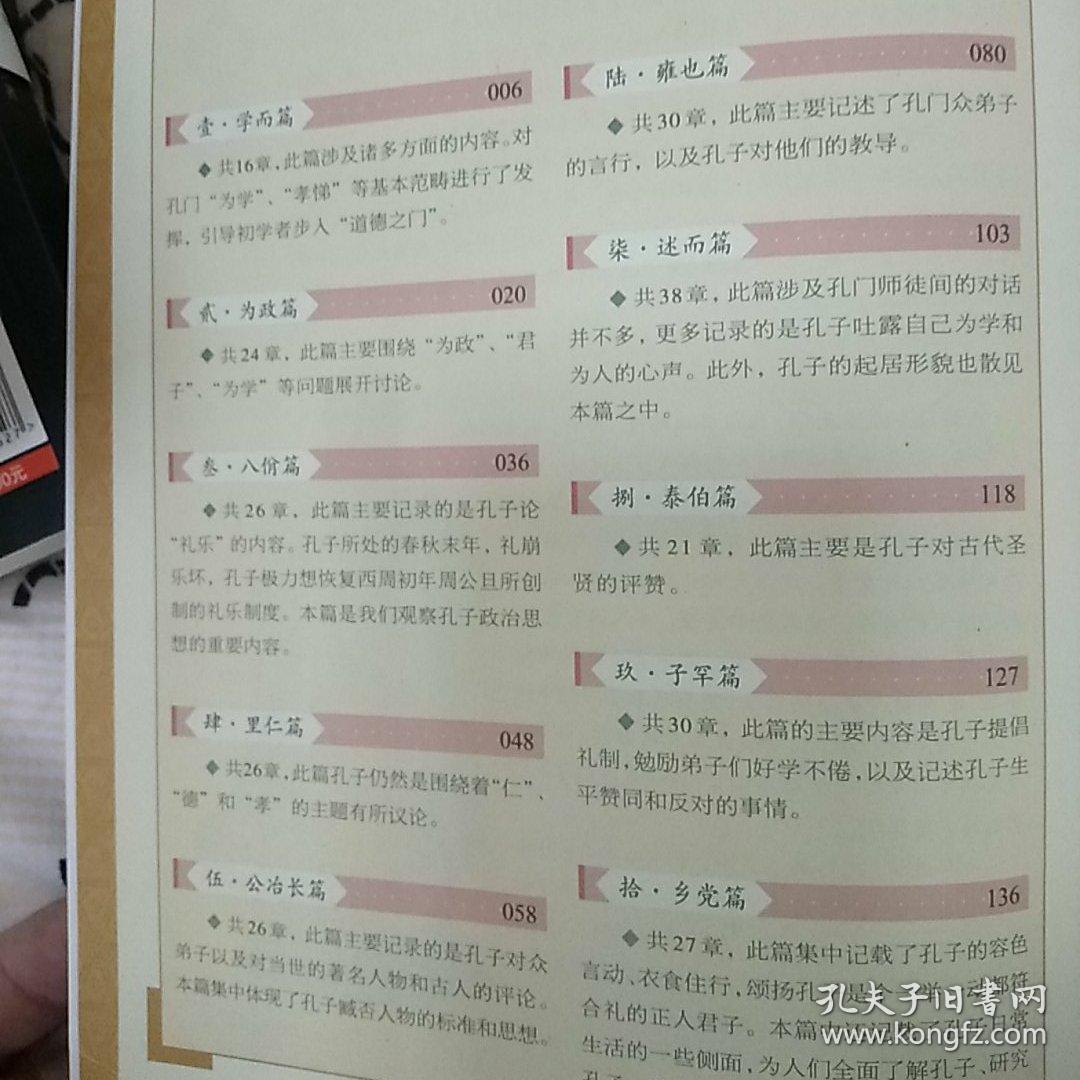 壹·学而篇 006
◆ 共16章，此篇涉及诸多方面的内容。对
孔门“为学”、“孝悌”等基本范畴进行了发
挥，引导初学者步入“道德之门”。
贰·为政篇 020
◆ 共24章，此篇主要围绕“为政”、“君
子”、“为学”等问题展开讨论。
叁·八佾篇 036
◆ 共26章，此篇主要记录的是孔子论
“礼乐”的内容。孔子所处的春秋末年，礼崩
乐坏，孔子极力想恢复西周初年周公旦所创
制的礼乐制度。本篇是我们观察孔子政治思
想的重要内容。
肆·里仁篇 048
◆ 共26章，此篇孔子仍然是围绕着“仁”、
“德”和“孝”的主题有所议论。
伍·公冶长篇 058
◆ 共26章，此篇主要记录的是孔子对众
弟子以及对当世的著名人物和古人的评论。
本篇集中体现了孔子臧否人物的标准和思想。
陆·雍也篇 080
◆ 共30章，此篇主要记述了孔门众弟子
的言行，以及孔子对他们的教导。
柒·述而篇 103
◆ 共38章，此篇涉及孔门师徒间的对话
并不多，更多记录的是孔子吐露自己为学和
为人的心声。此外，孔子的起居形貌也散见
本篇之中。
捌·泰伯篇 118
◆ 共21章，此篇主要是孔子对古代圣
贤的评赞。
玖·子罕篇 127
◆ 共30章，此篇的主要内容是孔子提倡
礼制，勉励弟子们好学不倦，以及记述孔子生
平赞同和反对的事情。
拾·乡党篇 136
◆ 共27章，此篇集中记载了孔子的容色
言动、衣食住行，颂扬孔子是个一举一动都符
合礼的正人君子。本篇
日常
生活的一些侧面，为人们全面了解孔子、研究
孔子
孔夫子旧书网
www.kongfz.com
0元